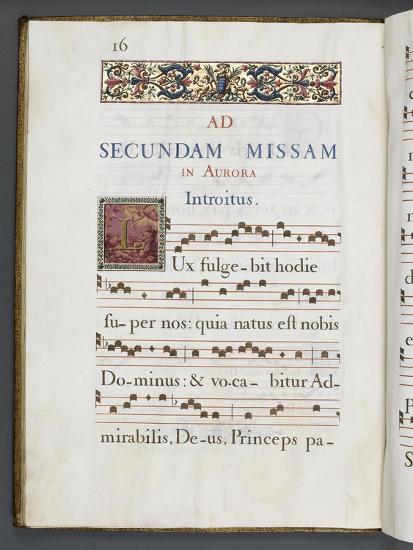 16
AD
SECUNDAM MISSAM
IN AURORA
Introitus.
LUx fulge-bit hodie
ſu-per nos: quia natus eſt nobis
Do-minus: & vo-ca-bitur Ad-
mirabilis, De-us, Princeps pa-